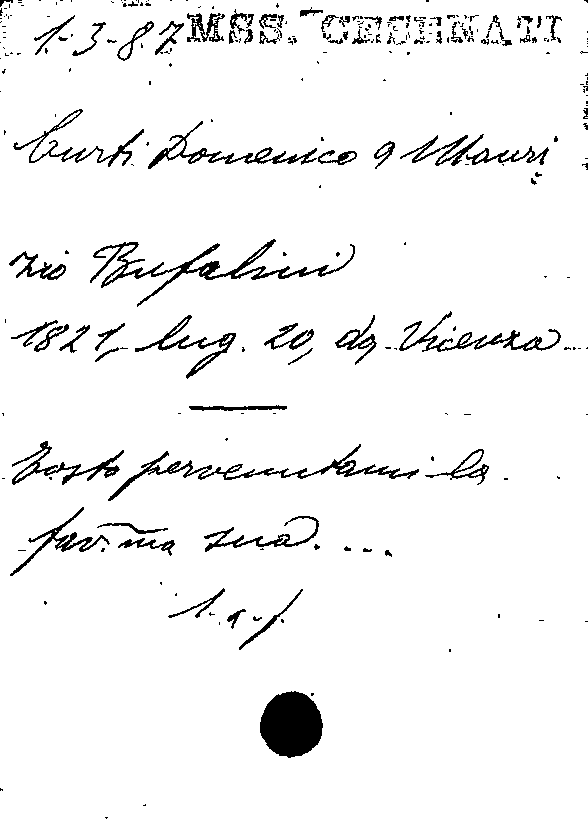 1.-3-8.7 MSS. CESENATI
Curti Domenico a Mauri
zio Bufalini
1821, lug. 20, da Vicenza
Tosto pervenutami la
fav.ma sua....
l. a. f.